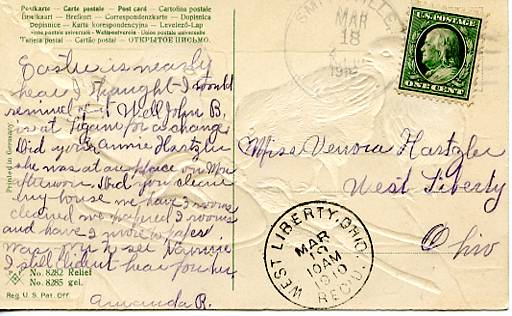 Postkarte — Carte postale — Post card — Cartolina postale
Briefkaart — Brefkort — Correspondenzkarte — Dopisnica
Dopisnice — Karta korespondencyjna — Levelező-Lap
Union postale universelle — Weltpostverein — Unione postale universale
Tarjeta postal — Cartão postal — ОТКРЫТОЕ ПИСЬМО.
MAR
18
1910
U.S. POSTAGE
ONE CENT
Easter is nearly
hear I thought I would
remind of it Well John B.
went for a change
Did you Fannie Hartzler
she was at our place on Mon
afternoon. Did you clean
any house we have 3 rooms
cleaned we papered 2 rooms
and have 2 more to paper
was over to see Nannie
I still didnt hear from her
Amanda R.
Miss Verrora Hartzler
West Liberty
Ohio
WEST LIBERTY, OHIO.
MAR
19
10AM
1910
REC'D.
Printed in Germany
No. 8282 Relief
No. 8285 gel.
Reg. U. S. Pat. Off.